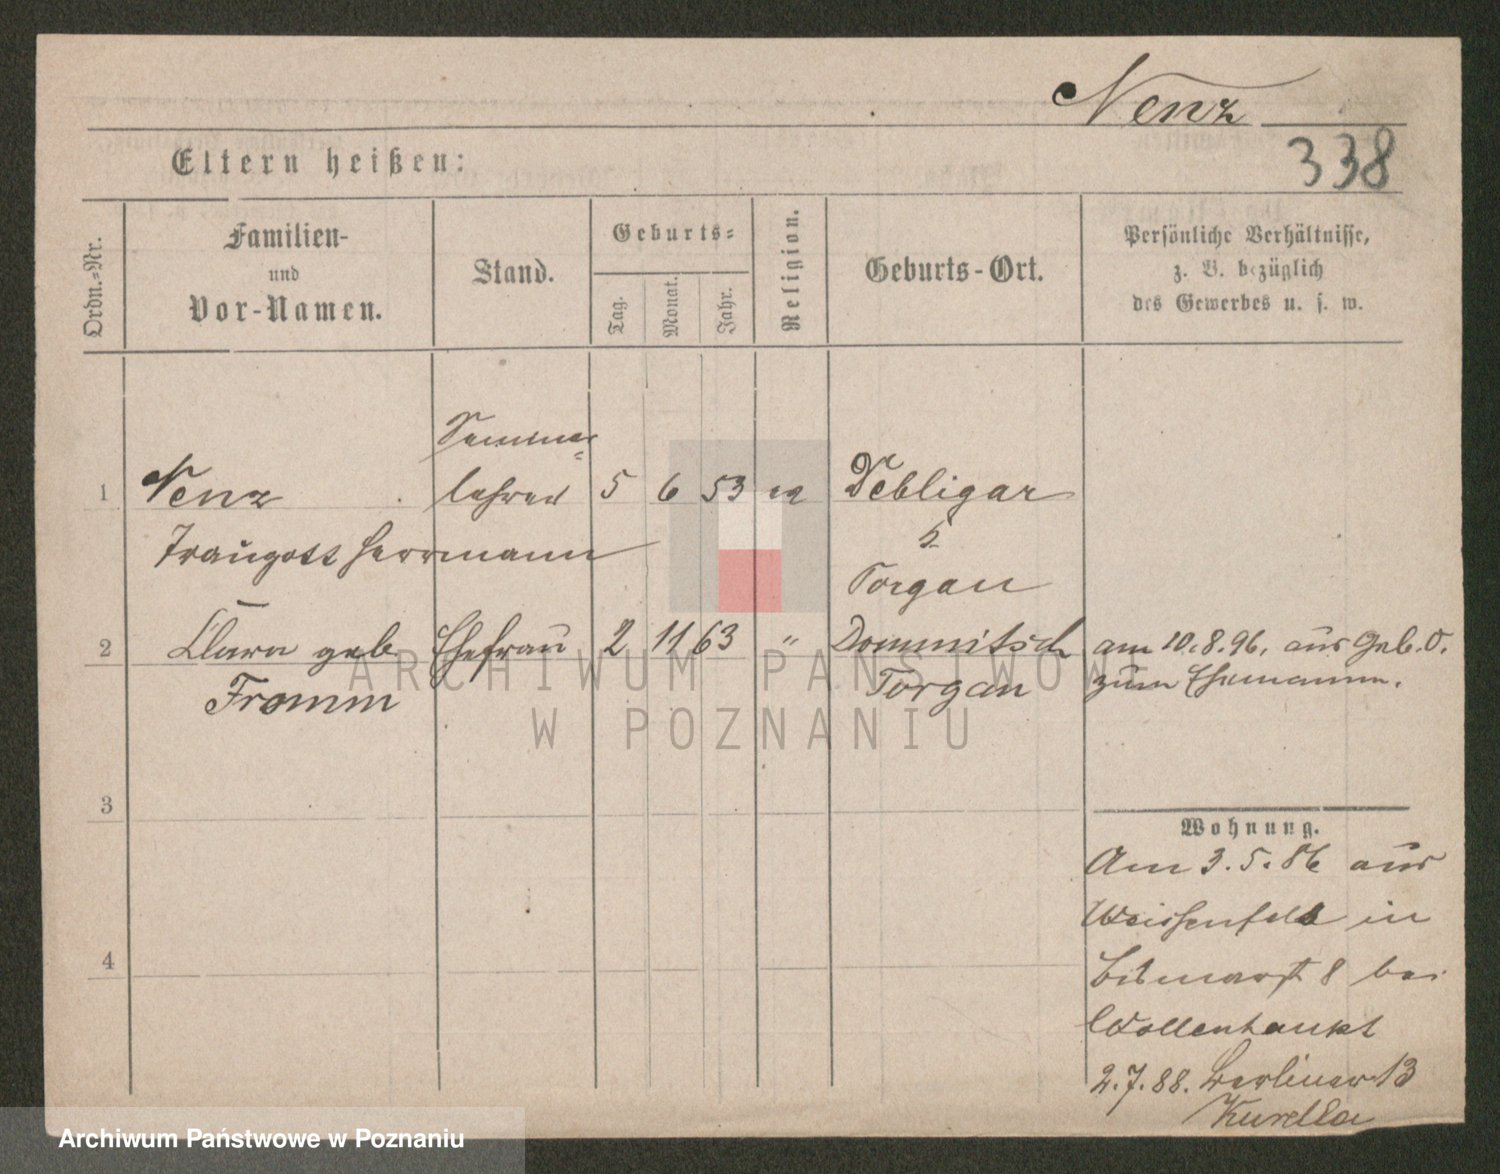 Nenz
338
Eltern heißen:
Ordn.-Nr.
Familien-
und
Vor-Namen.
Stand.
Geburts-
Tag.
Monat.
Jahr.
Religion.
Geburts-Ort.
Persönliche Verhältnisse,
z. B. bezüglich
des Gewerbes u. s. w.
Seminar-
1 Nenz lehrer 5 6 53 Debligar
Traugott Herrmann
Torgau
2 Clara geb Ehefrau 2 11 63 " Dommitsch am 10.8.96. aus Geb. O.
Fromm Torgau zum Ehemann.
3
4
Wohnung.
Am 3.5.86 aus
Weißenfels in
Bismarkst 8 bei
Wollenhaupt
2.7.88. Berliner 13
Kurella
ARCHIWUM PAŃSTWOWE
W POZNANIU
Archiwum Państwowe w Poznaniu